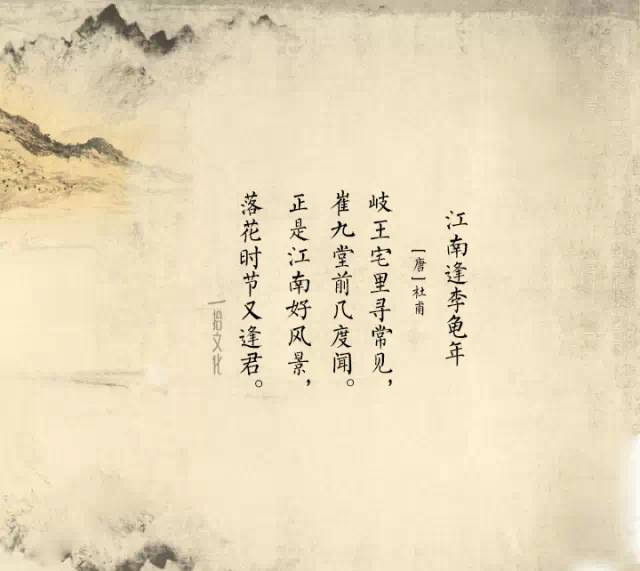 江南逢李龟年
[唐]杜甫
岐王宅里寻常见，
崔九堂前几度闻。
正是江南好风景，
落花时节又逢君。
一拾文化